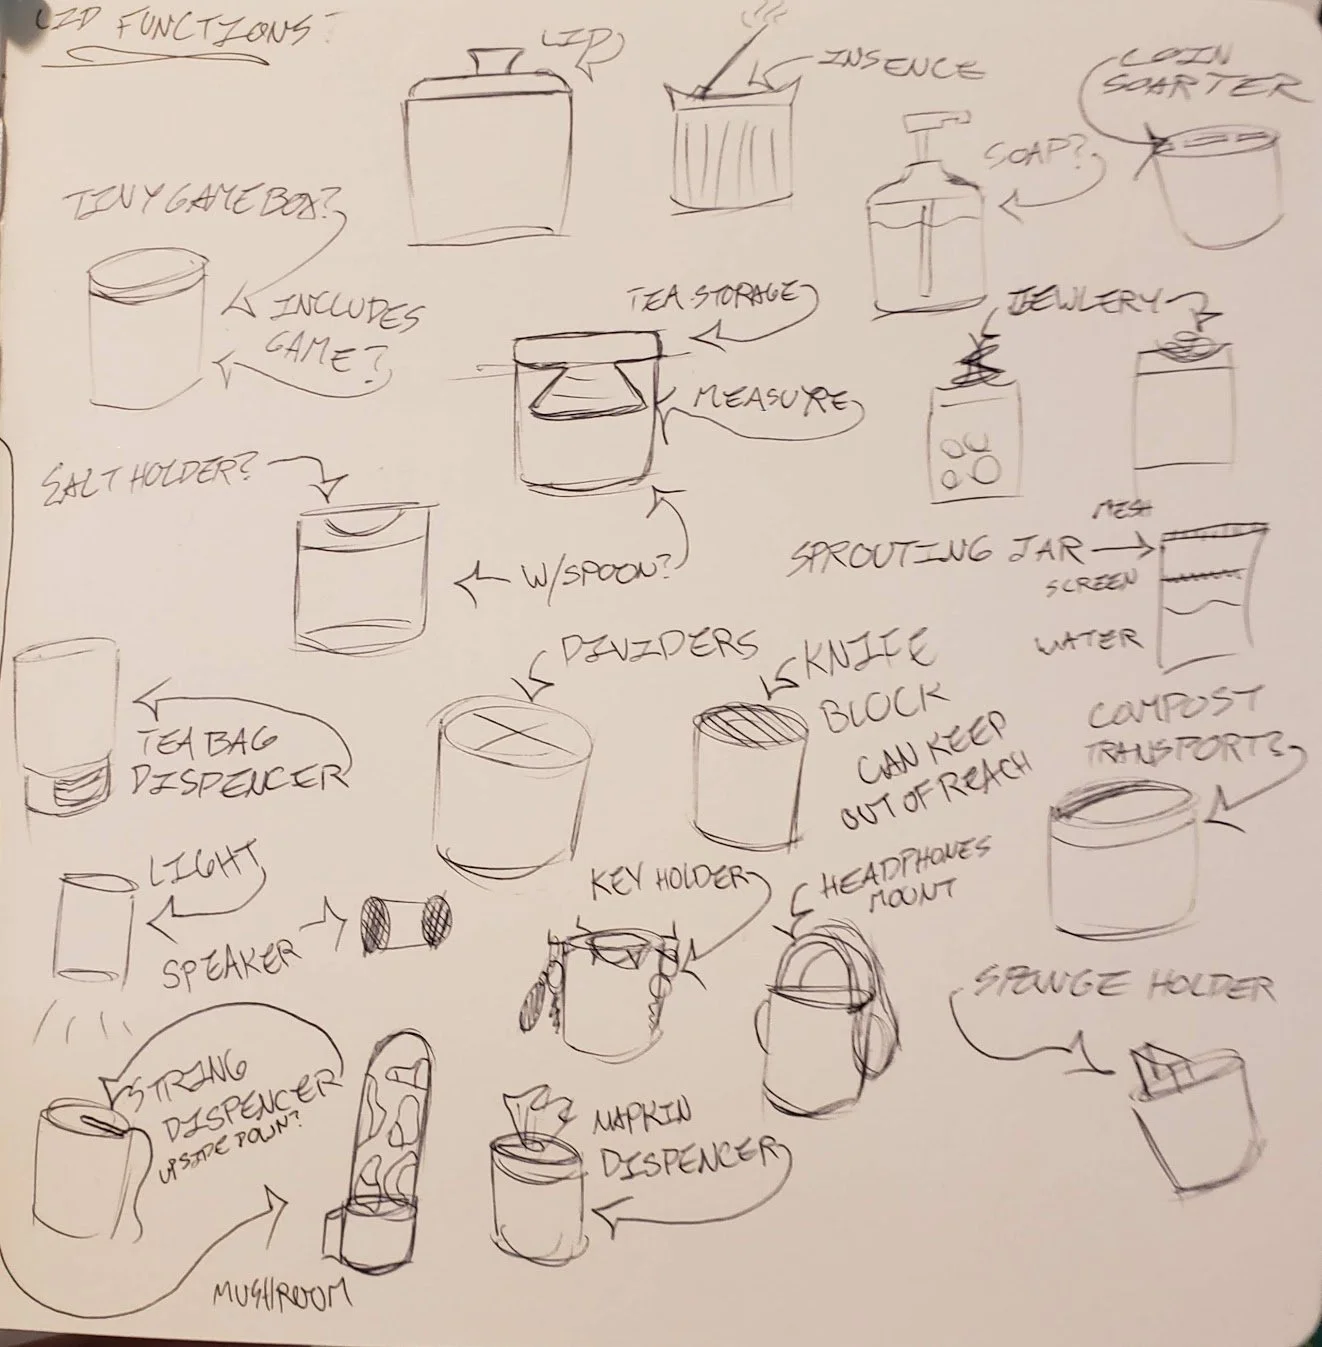 LID FUNCTIONS?
LID
INSENCE
COIN
SOARTER
SOAP?
TINY GAME BOX?
INCLUDES
GAME?
TEA STORAGE
MEASURE
JEWLERY
SALT HOLDER?
W/SPOON?
MESH
SPROUTING JAR
SCREEN
WATER
DIVIDERS
KNIFE
BLOCK
CAN KEEP
OUT OF REACH
COMPOST
TRANSPORT?
TEA BAG
DISPENCER
LIGHT
SPEAKER
KEY HOLDER
HEADPHONES
MOUNT
SPUNGE HOLDER
STRING
DISPENCER
UPSIDE DOWN?
NAPKIN
DISPENCER
MUSHROOM